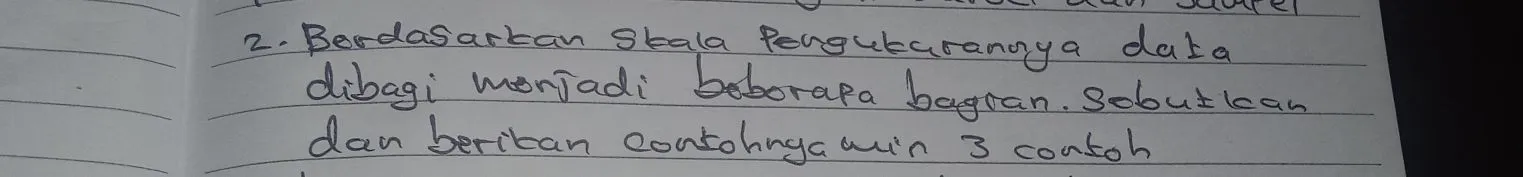 2. Berdasarkan Skala Pengukurannya data
dibagi menjadi beberapa bagian. Sebutkan
dan berikan contohnya min 3 contoh